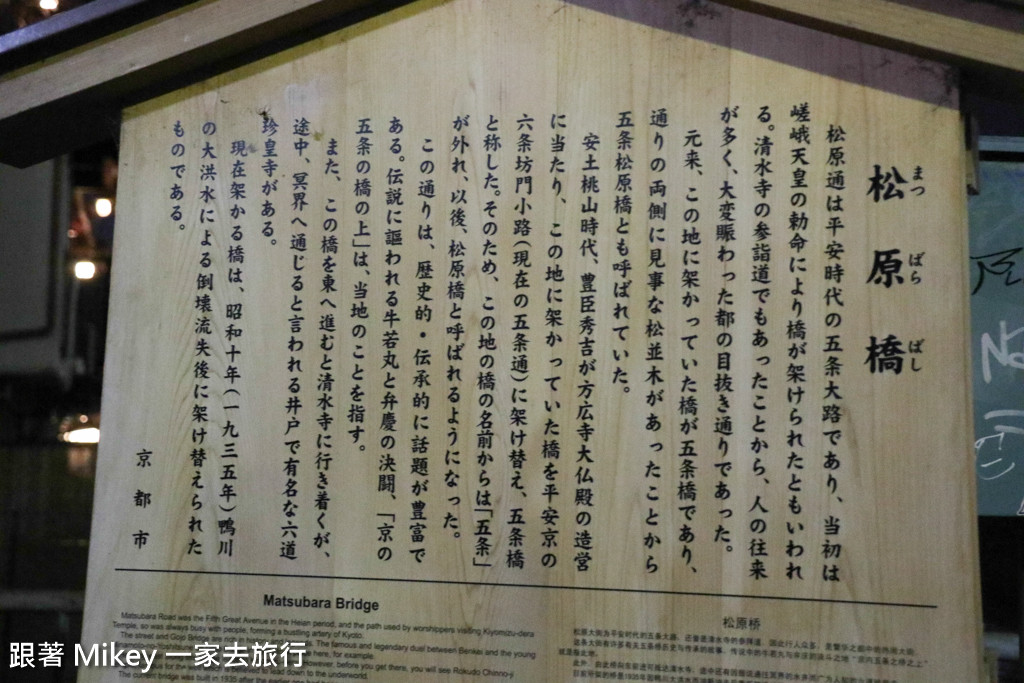 松原橋
まつ ばら ばし
松原通は平安時代の五条大路であり、当初は
嵯峨天皇の勅命により橋が架けられたともいわれ
る。清水寺の参詣道でもあったことから、人の往来
が多く、大変賑わった都の目抜き通りであった。
元来、この地に架かっていた橋が五条橋であり、
通りの両側に見事な松並木があったことから
五条松原橋とも呼ばれていた。
安土桃山時代、豊臣秀吉が方広寺大仏殿の造営
に当たり、この地に架かっていた橋を平安京の
六条坊門小路(現在の五条通)に架け替え、五条橋
と称した。そのため、この地の橋の名前からは「五条」
が外れ、以後、松原橋と呼ばれるようになった。
この通りは、歴史的・伝承的に話題が豊富で
ある。伝説に謳われる牛若丸と弁慶の決闘、「京の
五条の橋の上」は、当地のことを指す。
また、この橋を東へ進むと清水寺に行き着くが、
途中、冥界へ通じると言われる井戸で有名な六道
珍皇寺がある。
現在架かる橋は、昭和十年(一九三五年)鴨川
の大洪水による倒壊流失後に架け替えられた
ものである。
京都市
Matsubara Bridge
Matsubara Road was the Fifth Great Avenue in the Heian period, and the path used by worshippers visiting Kiyomizu-dera
Temple, so was always busy with people, forming a bustling artery of Kyoto.
The street and Gojo Bridge are rich in The famous and legendary duel between Benkei and the young
here, for example.
However, before you get there, you will see Rokudo Chinno-ji
to lead down to the underworld.
The current bridge was built in 1935 after the earlier
松原桥
松原大街为平安时代的五条大路,
跟著 Mikey 一家去旅行